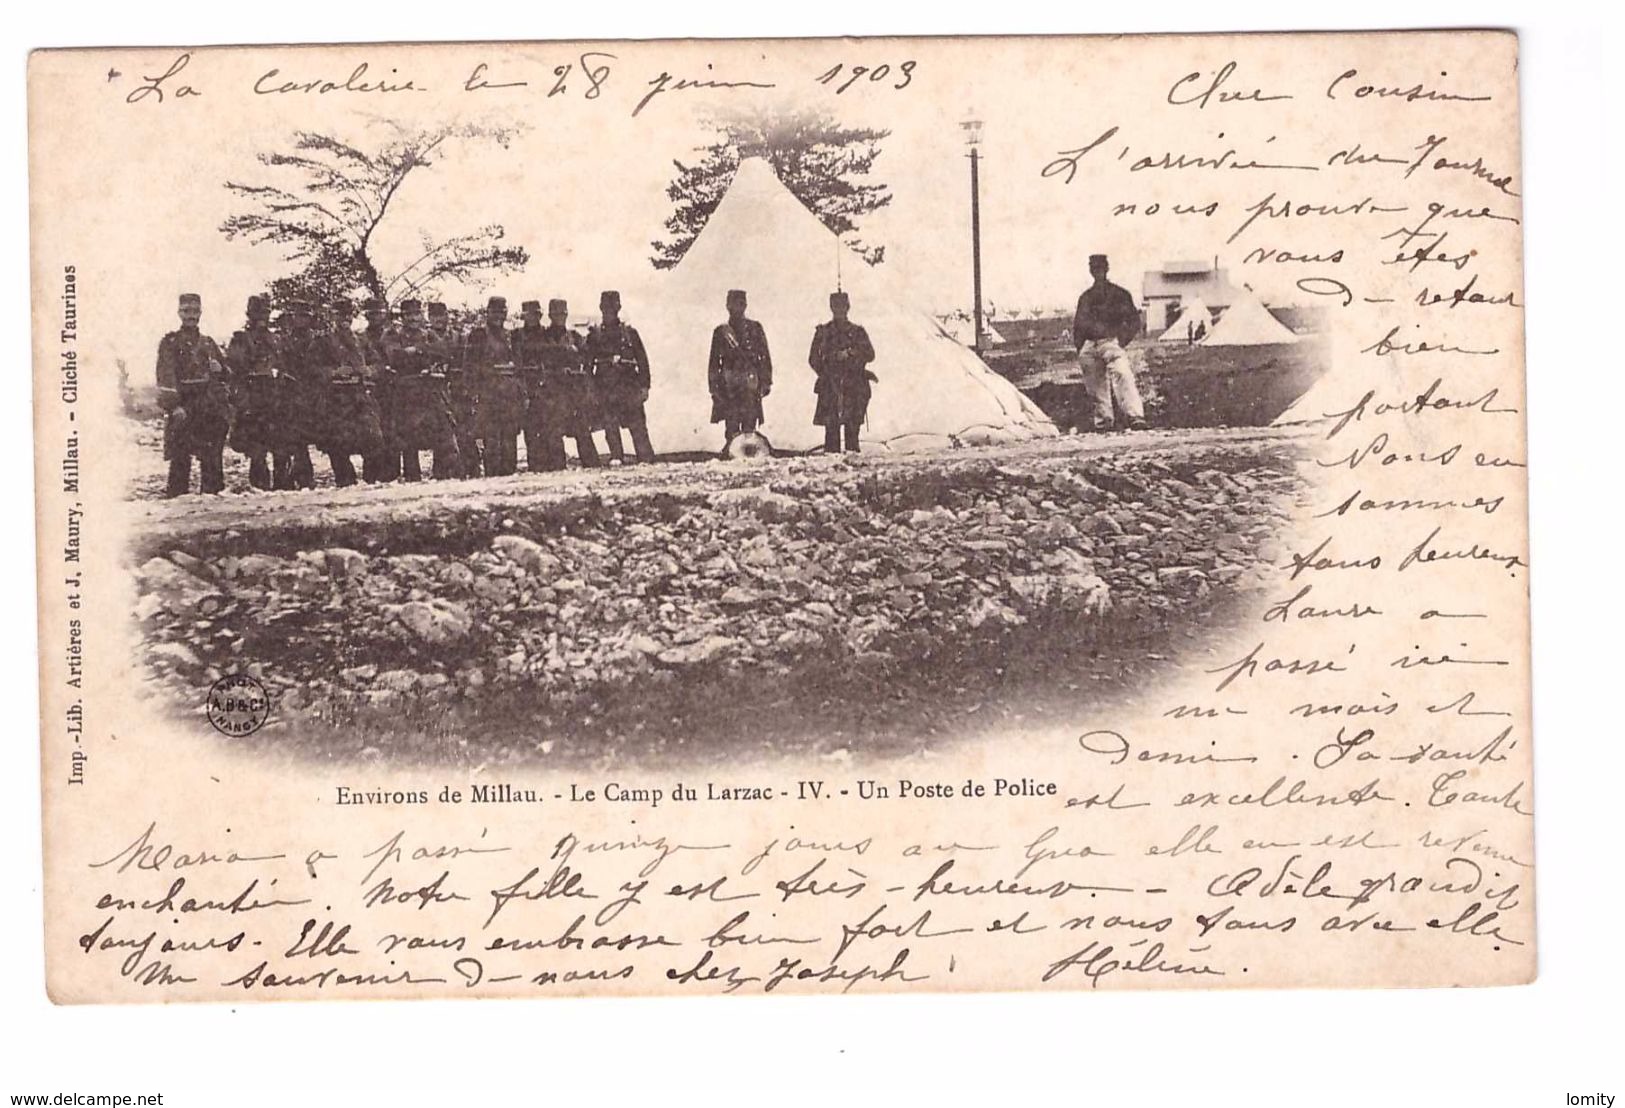 La Cavalerie le 28 juin 1903
Cher Cousin
L'arrivée du Journal
nous prouve que
vous êtes
de retour
bien
portant
Nous en
sommes
tous heureux.
Laure a
passé ici
un mois et
demi. Sa santé
est excellente. Tante
Maria a passé quinze jours au Gua elle en est revenue
enchantée. Notre fille y est très-heureuse. - Adèle grandit
toujours. Elle vous embrasse bien fort et nous tous avec elle.
Un souvenir de nous chez Joseph
Hélène.
Environs de Millau. - Le Camp du Larzac - IV. - Un Poste de Police
Imp.-Lib. Artières et J. Maury, Millau. - Cliché Taurines
PHOT
A.B & Cie
NANCY
www.delcampe.net
lomity